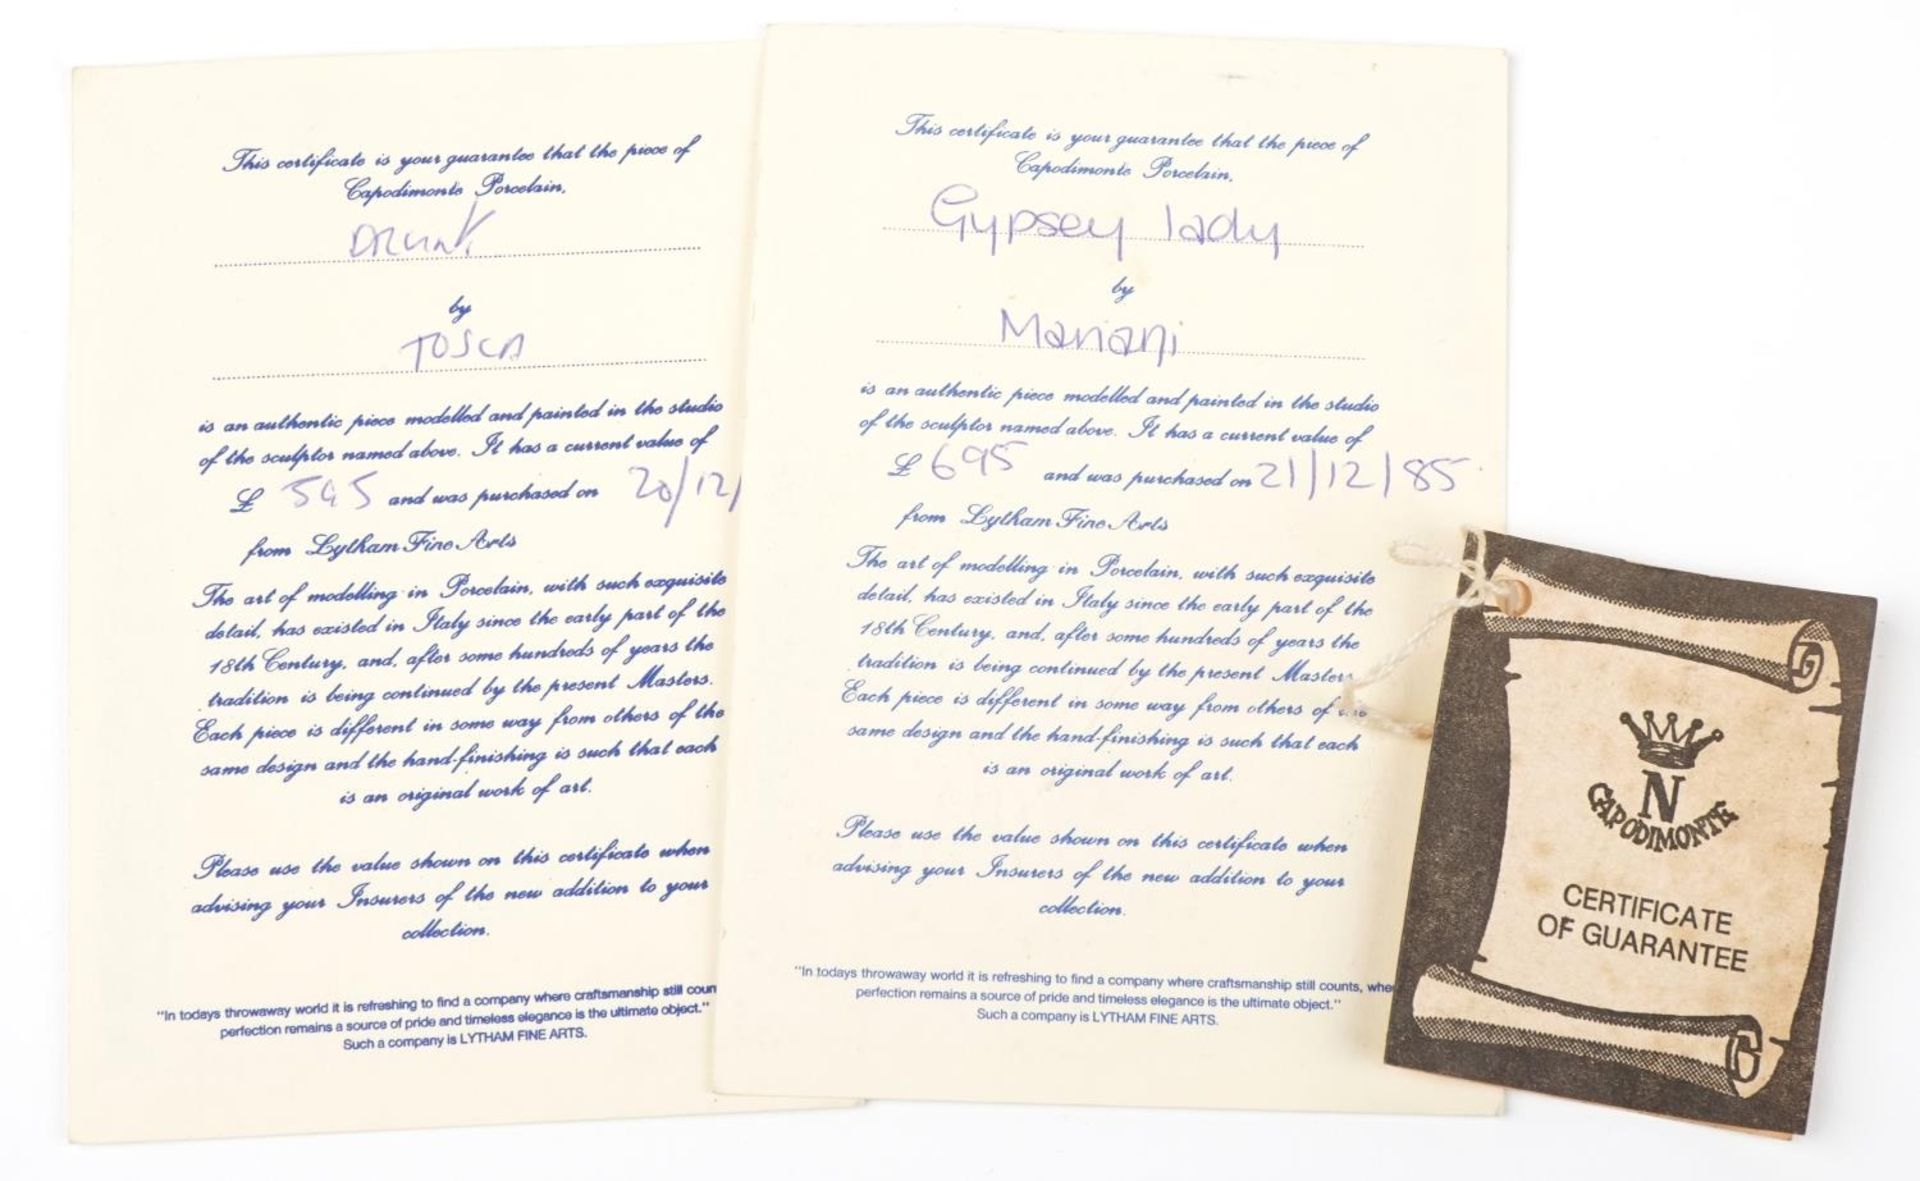 This certificate is your guarantee that the piece of
Capodimonte Porcelain,
DRUNK
by
TOSCA
is an authentic piece modelled and painted in the studio
of the sculptor named above. It has a current value of
£ 545 and was purchased on 20/12/
from Lytham Fine Arts
The art of modelling in Porcelain, with such exquisite
detail, has existed in Italy since the early part of the
18th Century, and, after some hundreds of years the
tradition is being continued by the present Masters.
Each piece is different in some way from others of the
same design and the hand-finishing is such that each
is an original work of art.
Please use the value shown on this certificate when
advising your Insurers of the new addition to your
collection.
"In todays throwaway world it is refreshing to find a company where craftsmanship still coun
perfection remains a source of pride and timeless elegance is the ultimate object."
Such a company is LYTHAM FINE ARTS.
This certificate is your guarantee that the piece of
Capodimonte Porcelain,
Gypsey lady
by
Mariani
is an authentic piece modelled and painted in the studio
of the sculptor named above. It has a current value of
£ 695 and was purchased on 21/12/85
from Lytham Fine Arts
The art of modelling in Porcelain, with such exquisite
detail, has existed in Italy since the early part of the
18th Century, and, after some hundreds of years the
tradition is being continued by the present Masters
Each piece is different in some way from others of the
same design and the hand-finishing is such that each
is an original work of art.
Please use the value shown on this certificate when
advising your Insurers of the new addition to your
collection.
"In todays throwaway world it is refreshing to find a company where craftsmanship still counts, whe
perfection remains a source of pride and timeless elegance is the ultimate object."
Such a company is LYTHAM FINE ARTS.
N
CAPODIMONTE
CERTIFICATE
OF GUARANTEE